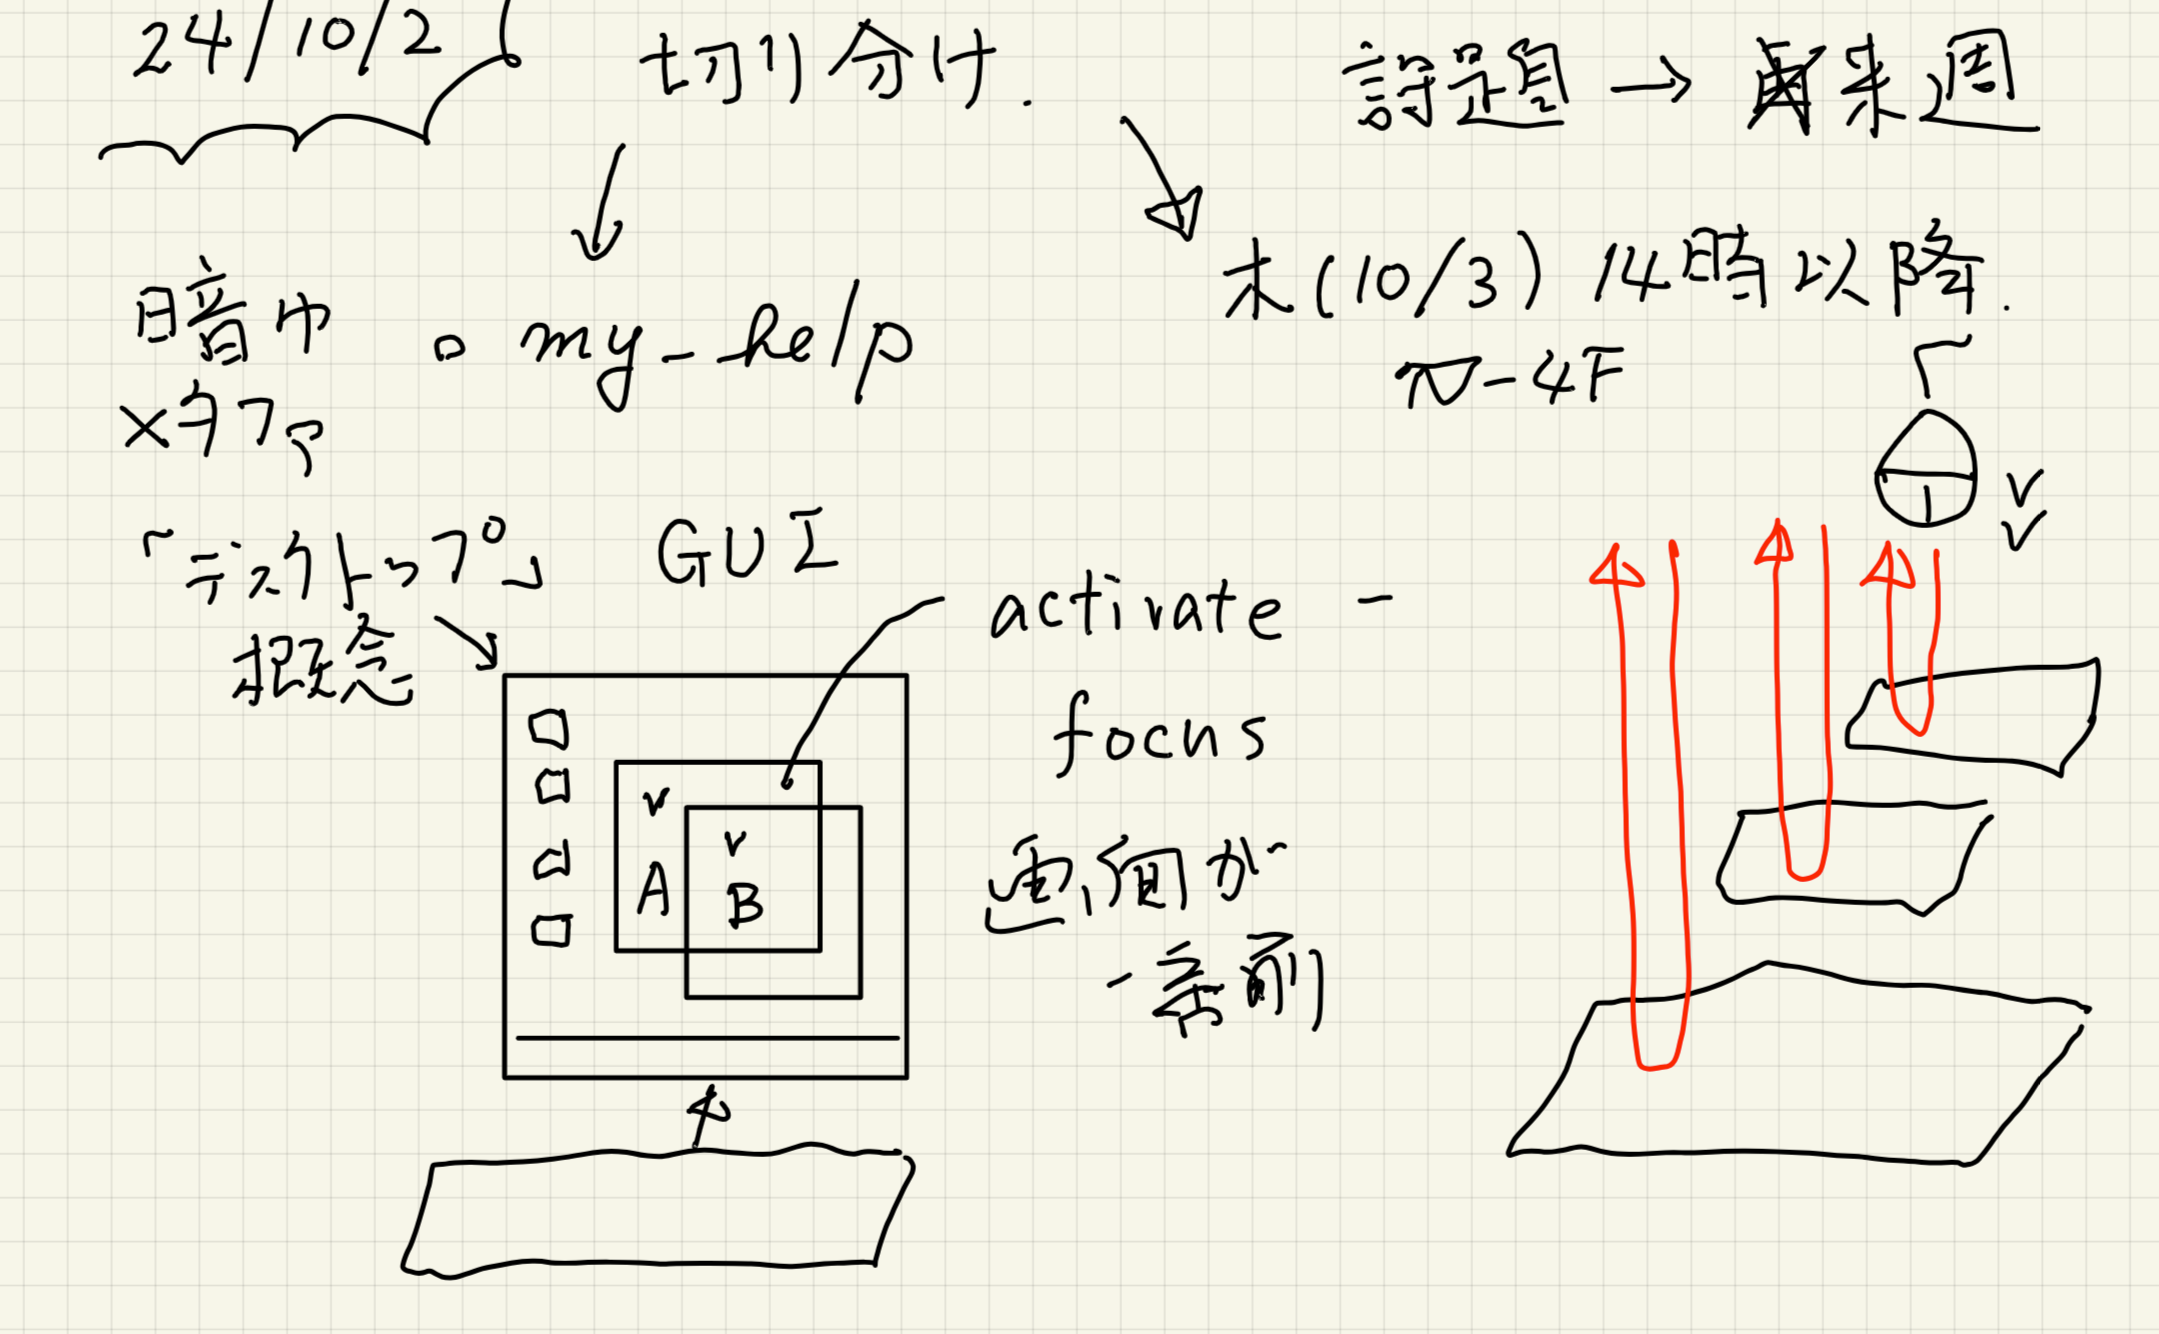 24/10/2
切り分け.
詩題 → 来週
暗中
×タプ
。my_help
木(10/3) 14時以降.
π-4F
「デスクトップ」
概念
GUI
activate -
focus
画面が
一番前
A
B